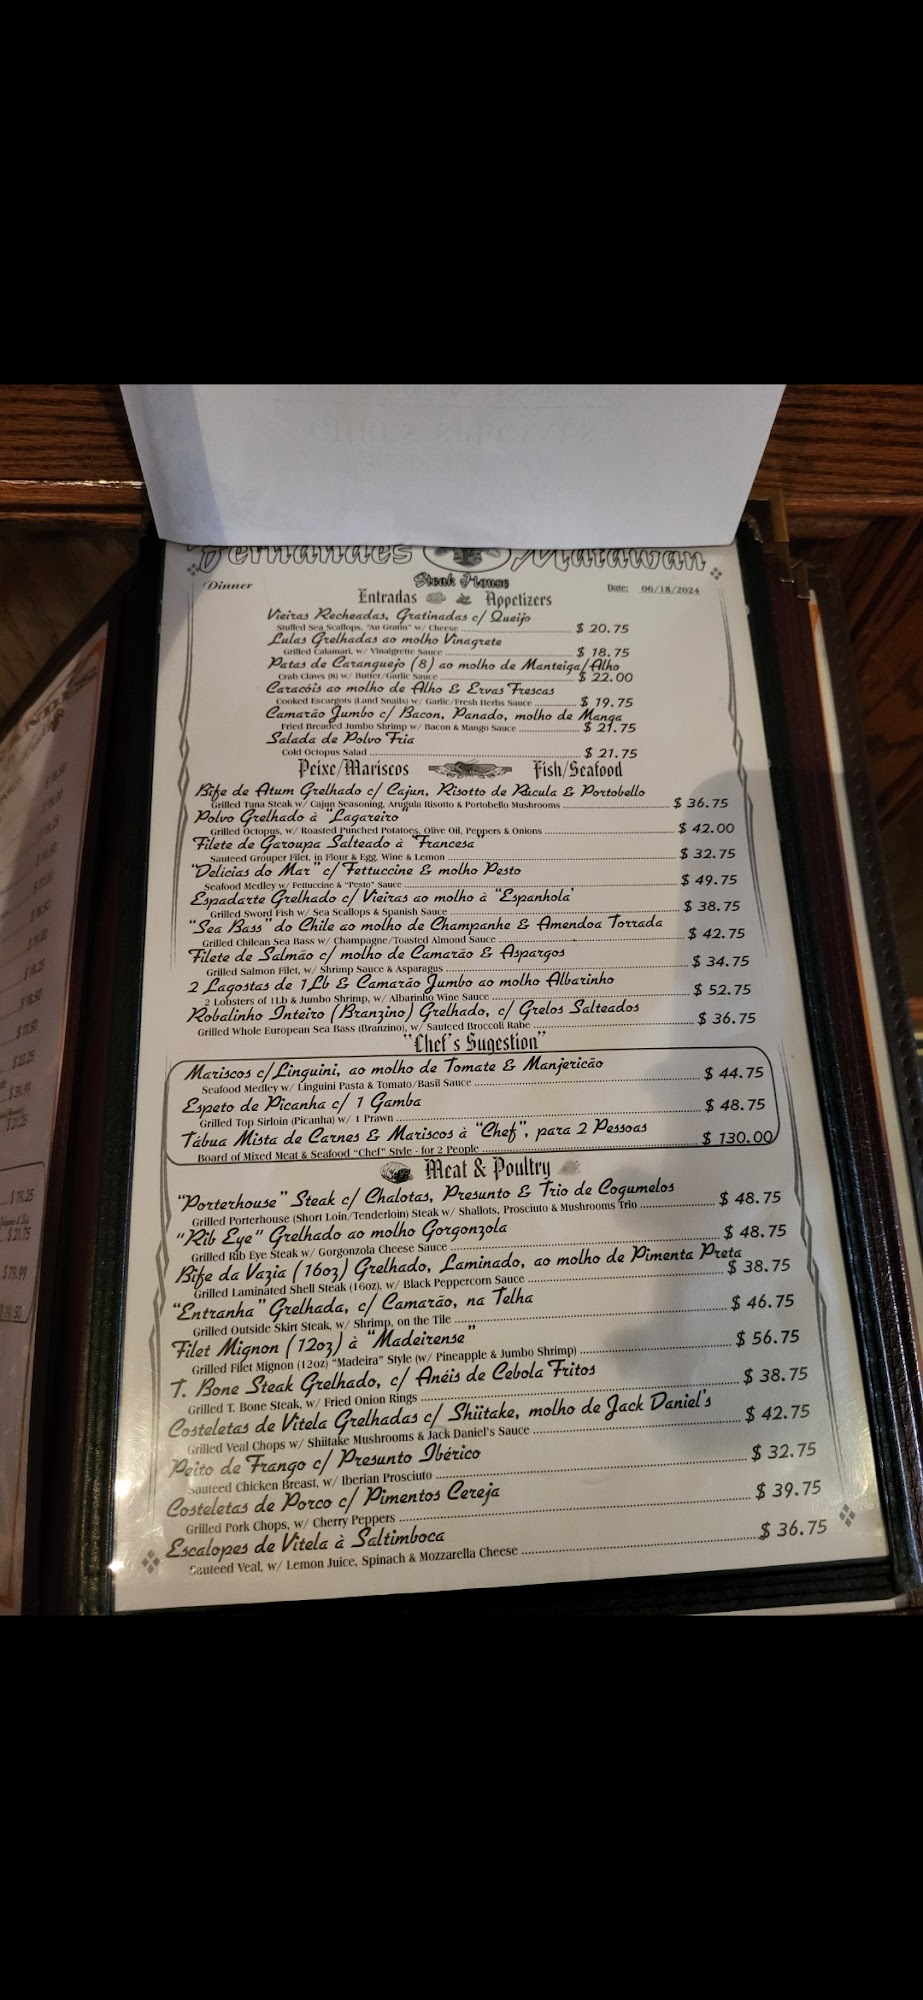 Fernandes Matawan
Steak House
Dinner
Date: 06/18/2024
Entradas Appetizers
Vieiras Recheadas, Gratinadas c/ Queijo
Stuffed Sea Scallops, "Au Gratin" w/ Cheese $ 20.75
Lulas Grelhadas ao molho Vinagrete
Grilled Calamari, w/ Vinaigrette Sauce $ 18.75
Patas de Caranguejo (8) ao molho de Manteiga/Alho
Crab Claws (8) w/ Butter/Garlic Sauce $ 22.00
Caracóis ao molho de Alho & Ervas Frescas
Cooked Escargots (Land Snails) w/ Garlic/Fresh Herbs Sauce $ 19.75
Camarão Jumbo c/ Bacon, Panado, molho de Manga
Fried Breaded Jumbo Shrimp w/ Bacon & Mango Sauce $ 21.75
Salada de Polvo Fria
Cold Octopus Salad $ 21.75
Peixe/Mariscos Fish/Seafood
Bife de Atum Grelhado c/ Cajun, Risotto de Rúcula & Portobello
Grilled Tuna Steak w/ Cajun Seasoning, Arugula Risotto & Portobello Mushrooms $ 36.75
Polvo Grelhado à "Lagareiro"
Grilled Octopus, w/ Roasted Punched Potatoes, Olive Oil, Peppers & Onions $ 42.00
Filete de Garoupa Salteado à "Francesa"
Sauteed Grouper Filet, in Flour & Egg, Wine & Lemon $ 32.75
"Delicias do Mar" c/ Fettuccine & molho Pesto
Seafood Medley w/ Fettuccine & "Pesto" Sauce $ 49.75
Espadarte Grelhado c/ Vieiras ao molho à "Espanhola'
Grilled Sword Fish w/ Sea Scallops & Spanish Sauce $ 38.75
"Sea Bass" do Chile ao molho de Champanhe & Amendoa Torrada
Grilled Chilean Sea Bass w/ Champagne/Toasted Almond Sauce $ 42.75
Filete de Salmão c/ molho de Camarão & Aspargos
Grilled Salmon Filet, w/ Shrimp Sauce & Asparagus $ 34.75
2 Lagostas de 1Lb & Camarão Jumbo ao molho Albarinho
2 Lobsters of 1Lb & Jumbo Shrimp, w/ Albarinho Wine Sauce $ 52.75
Robalinho Inteiro (Branzino) Grelhado, c/ Grelos Salteados
Grilled Whole European Sea Bass (Branzino), w/ Sauteed Broccoli Rabe $ 36.75
"Chef's Sugestion"
Mariscos c/Linguini, ao molho de Tomate & Manjericão
Seafood Medley w/ Linguini Pasta & Tomato/Basil Sauce $ 44.75
Espeto de Picanha c/ 1 Gamba
Grilled Top Sirloin (Picanha) w/ 1 Prawn $ 48.75
Tábua Mista de Carnes & Mariscos à "Chef", para 2 Pessoas
Board of Mixed Meat & Seafood "Chef" Style - for 2 People $ 130.00
Meat & Poultry
"Porterhouse" Steak c/ Chalotas, Presunto & Trio de Cogumelos
Grilled Porterhouse (Short Loin/Tenderloin) Steak w/ Shallots, Prosciuto & Mushrooms Trio $ 48.75
"Rib Eye" Grelhado ao molho Gorgonzola
Grilled Rib Eye Steak w/ Gorgonzola Cheese Sauce $ 48.75
Bife da Vazia (16oz) Grelhado, Laminado, ao molho de Pimenta Preta
Grilled Laminated Shell Steak (16oz), w/ Black Peppercorn Sauce $ 38.75
"Entranha" Grelhada, c/ Camarão, na Telha
Grilled Outside Skirt Steak, w/ Shrimp, on the Tile $ 46.75
Filet Mignon (12oz) à "Madeirense"
Grilled Filet Mignon (12oz) "Madeira" Style (w/ Pineapple & Jumbo Shrimp) $ 56.75
T. Bone Steak Grelhado, c/ Anéis de Cebola Fritos
Grilled T. Bone Steak, w/ Fried Onion Rings $ 38.75
Costeletas de Vitela Grelhadas c/ Shiitake, molho de Jack Daniel's
Grilled Veal Chops w/ Shiitake Mushrooms & Jack Daniel's Sauce $ 42.75
Peito de Frango c/ Presunto Ibérico
Sauteed Chicken Breast, w/ Iberian Prosciuto $ 32.75
Costeletas de Porco c/ Pimentos Cereja
Grilled Pork Chops, w/ Cherry Peppers $ 39.75
Escalopes de Vitela à Saltimboca
Sauteed Veal, w/ Lemon Juice, Spinach & Mozzarella Cheese $ 36.75